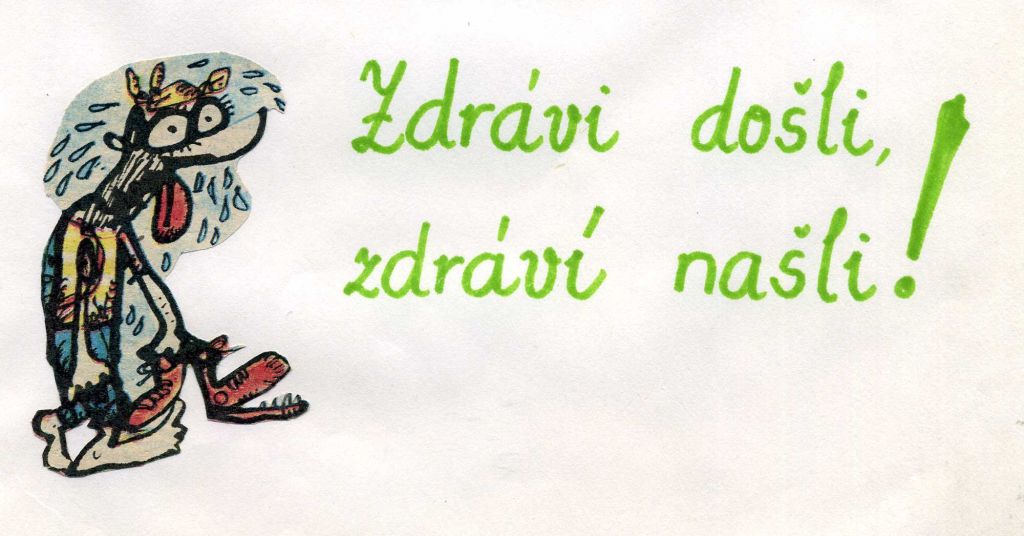 Zdrávi došli,
zdráví našli!